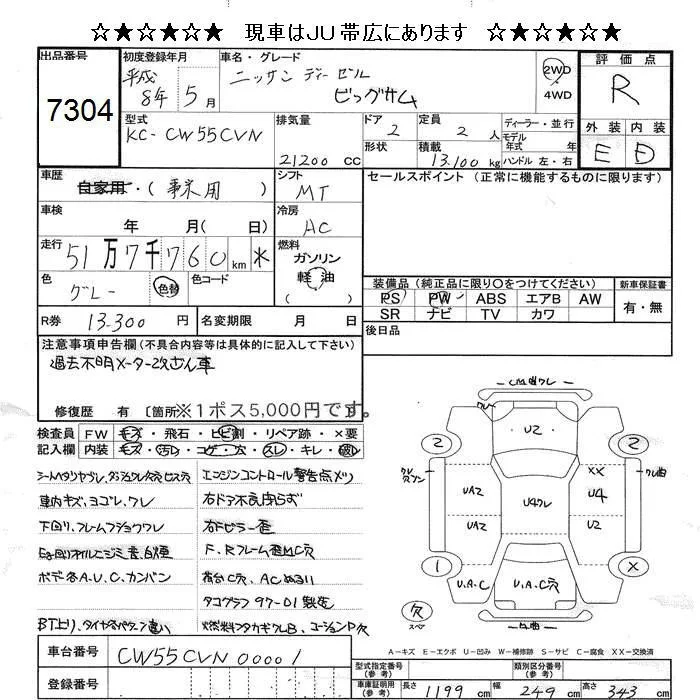 ☆★☆★☆★ 現車はJU帯広にあります ☆★☆★☆★
出品番号
7304
初度登録年月
平成 8年 5月
車名・グレード
ニッサンディーゼル
ビッグサム
2WD
4WD
評価点
R
外装 内装
E D
型式
KC- CW55CVN
排気量
21200 CC
ドア 2
形状
定員 2 人
積載 13,100 kg
ディーラー・並行
モデル
年式 年
ハンドル 左・右
車歴
自家用・(事業用)
シフト
MT
セールスポイント (正常に機能するものに限ります)
車検
年 月( 日)
冷房
AC
走行
51万7千760 km *
燃料
ガソリン
軽油
( )
色
グレー
色替
色コード
装備品 (純正品に限り○をつけてください)
PS PW ABS エアB AW
SR ナビ TV カワ
新車保証書
有・無
R券 13,300 円
名変期限 月 日
後日品
注意事項申告欄(不具合内容等は具体的に記入して下さい)
過去不明メーター改ざん車
修復歴 有 [箇所
※1ポス5,000円です。
検査員 FW キズ・飛石・ヒビ割・リペア跡・×要
記入欄 内装 キズ・汚レ・コゲ・穴・スレ・キレ・破レ
シートヘタリヤブレ、
エンジンコントロール警告点メツ
車内キズ、ヨゴレ、ワレ
右ドア不良、閉らず
下回り、フレームフショクワレ
右Fピラー歪
Eg回りオイルニジミ、
F、Rフレーム歪MC穴
ボデー各A、U、C、カンバン
荷台C穴、ACぬるい
タコグラフ97-01製造
BT上り、タイヤ各パタン違い
燃料タンクフタカギワレB、コーションP欠
ワレ
U2
2
2
UA2
UA2
U4ワレ
XX
U4
U2
ワレ曲
1
X
U、A、C
U、A、C穴
欠
スペア
A-キズ E-エクボ U-凹み W-補修跡 S-サビ C-腐食 XX-交換済
車台番号
CW55CVN00001
登録番号
型式指定番号
(参考)
類別区分番号
(参考)
車庫証明用
(参考)
長さ 1199 cm
幅 249 cm
高さ 343 cm